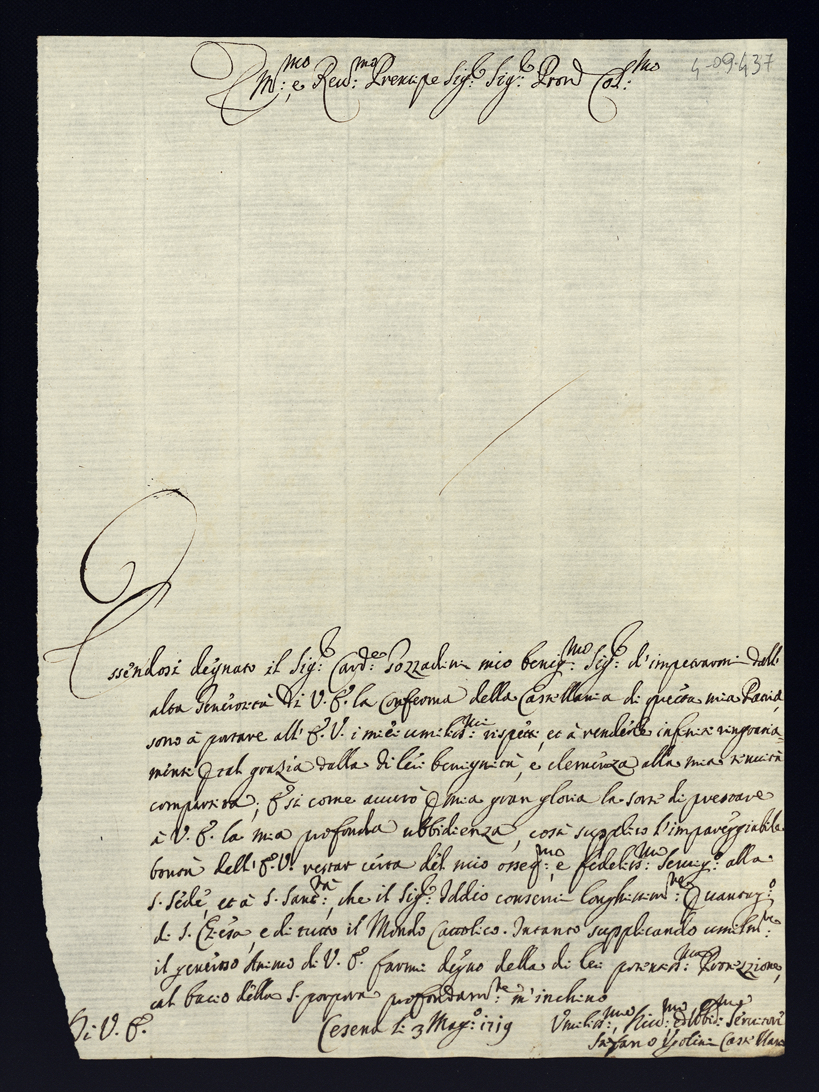 Em:mo e Rev:mo Prencipe Sig:e Sig:e Pron Col:mo
4-09-437
Essendosi degnato il Sig:r Card:e Gozzadini mio benig:mo Sig:r d'impetrarmi dall'
alta Generosità di V. E. la Conferma della Castellania di questa mia Patria,
sono à portare all' E. V. i miei umilis:mi rispetti, et à renderle infiniti ringrazia
menti p tal grazia dalla di lei benignità, e clemenza alla mia tenuità
compartita; E si come ascrivo p mia gran gloria la sorte di prestare
à V. E. la mia profonda ubbidienza, così supplico l'impareggiabile
bontà dell' E. V. restar certa del mio osseq:mo e fedelis:mo Servig:o alla
S. Sede, et à S. Sant:tà, che il Sig:r Iddio conservi longhissim:te p vantag:o
di S. Chiesa, e di tutto il Mondo Cattolico. Intanto supplicando umilm:te
il generoso Animo di V. E. farmi degno della di lei potentis:ma Protezzione,
al bacio della S. porpora profondam:te m'inchino
Di V. E.
Cesena li 3 Mag:o 1719
Umilis:mo, Div:mo et Obbd:mo Servitore
Stefano Ugolini Castellano